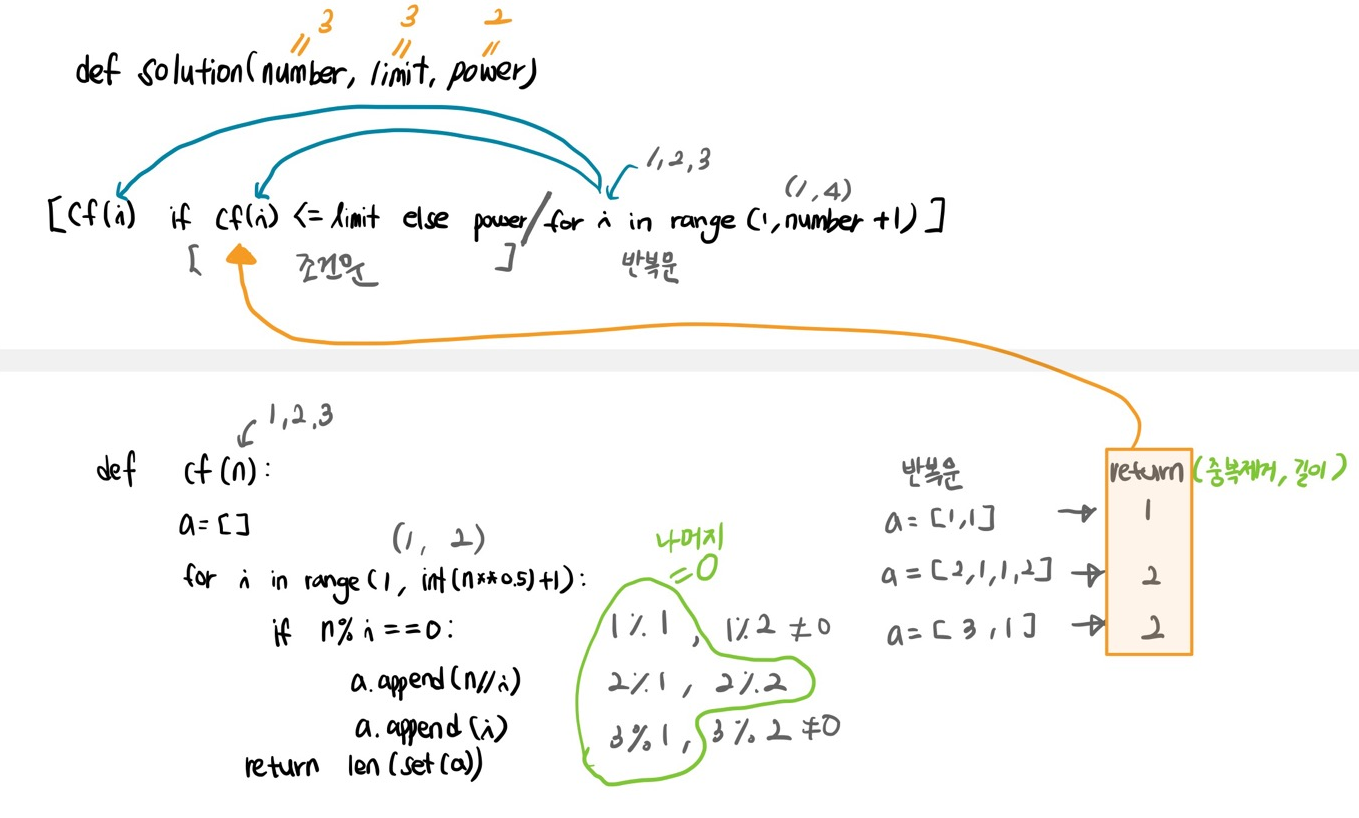 3 3 2
// // //
def solution(number, limit, power)
1,2,3
(1,4)
[cf(i) if cf(i) <= limit else power / for i in range (1, number +1) ]
[ 조건문 ] 반복문
1,2,3
def cf(n):
a=[]
(1, 2)
for i in range(1, int(n**0.5)+1):
if n%i==0:
a.append(n//i)
a.append(i)
return len(set(a))
나머지
=0
1%1, 1%2 ≠0
2%1, 2%2
3%1, 3%2 ≠0
반복문 return (중복제거, 길이)
a=[1,1] → 1
a=[2,1,1,2] → 2
a=[3,1] → 2